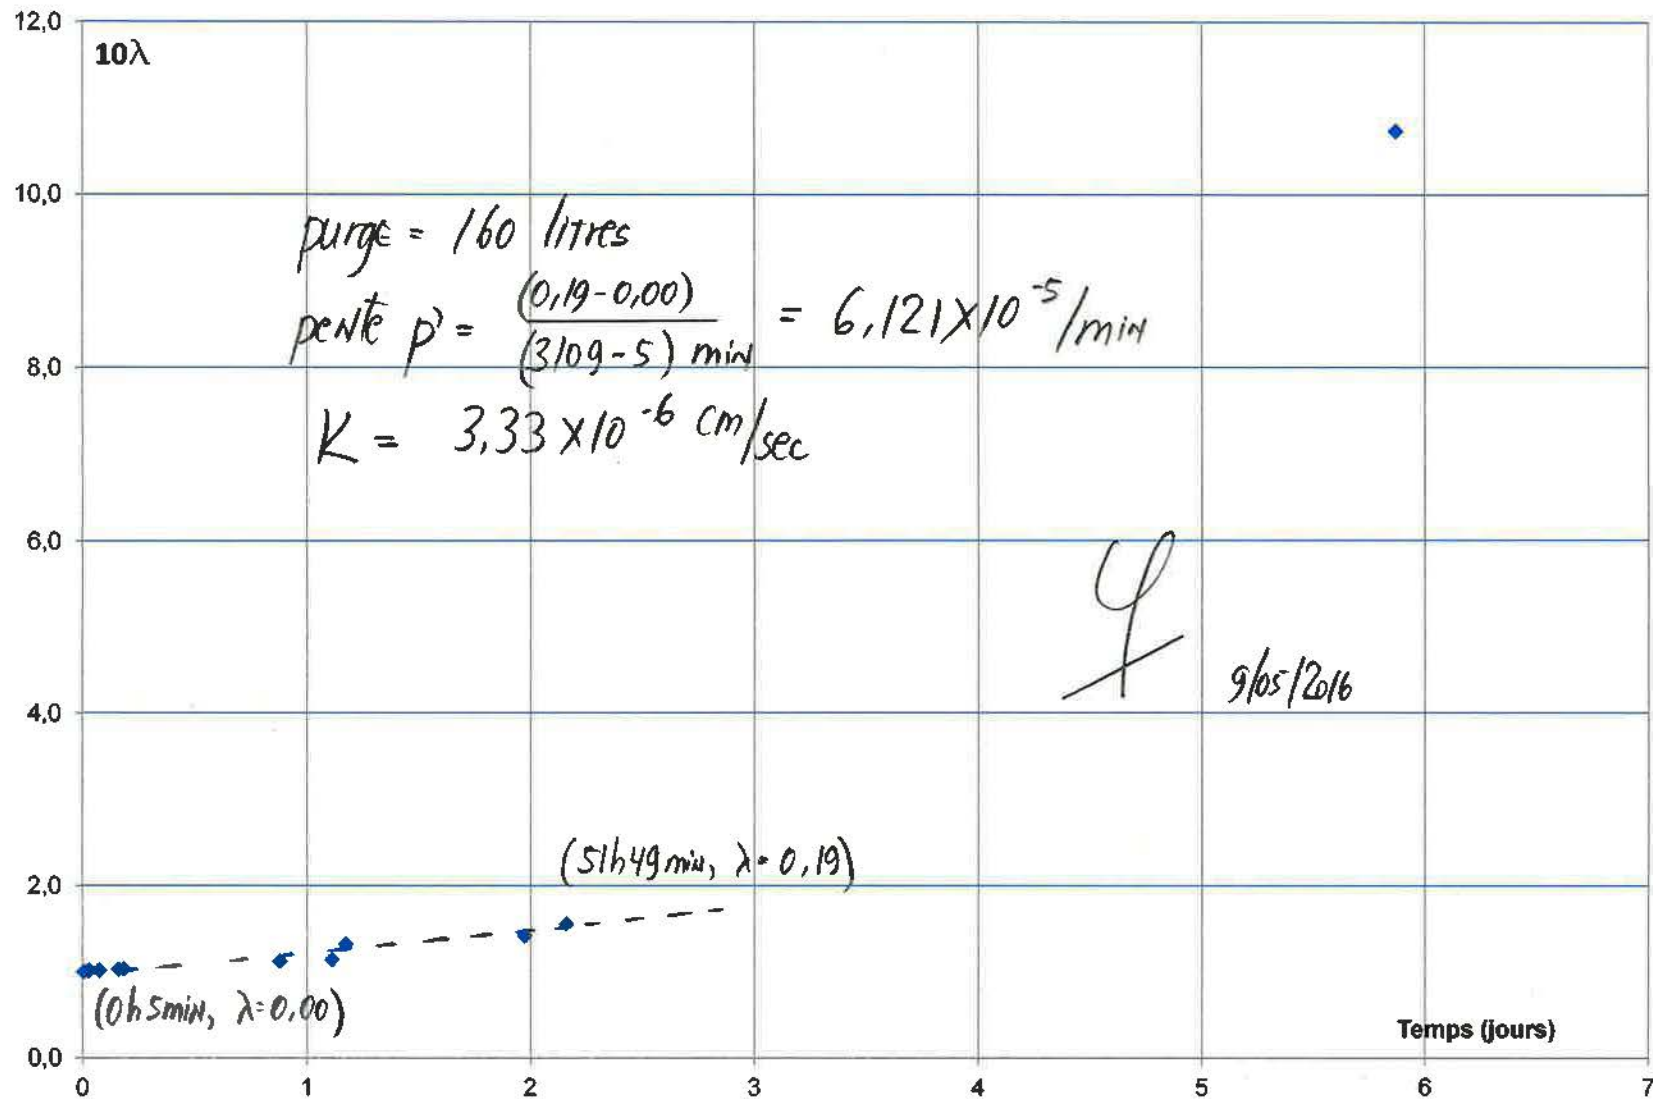 12,0
10λ
10,0
purge = 160 litres
pente p' = (0,19-0,00) / (3109-5) min = 6,121X10^-5/min
8,0
K = 3,33 X10^-6 cm/sec
6,0
9/05/2016
4,0
(51h49min, λ=0,19)
2,0
(0h5min, λ=0,00)
Temps (jours)
0,0
0 1 2 3 4 5 6 7